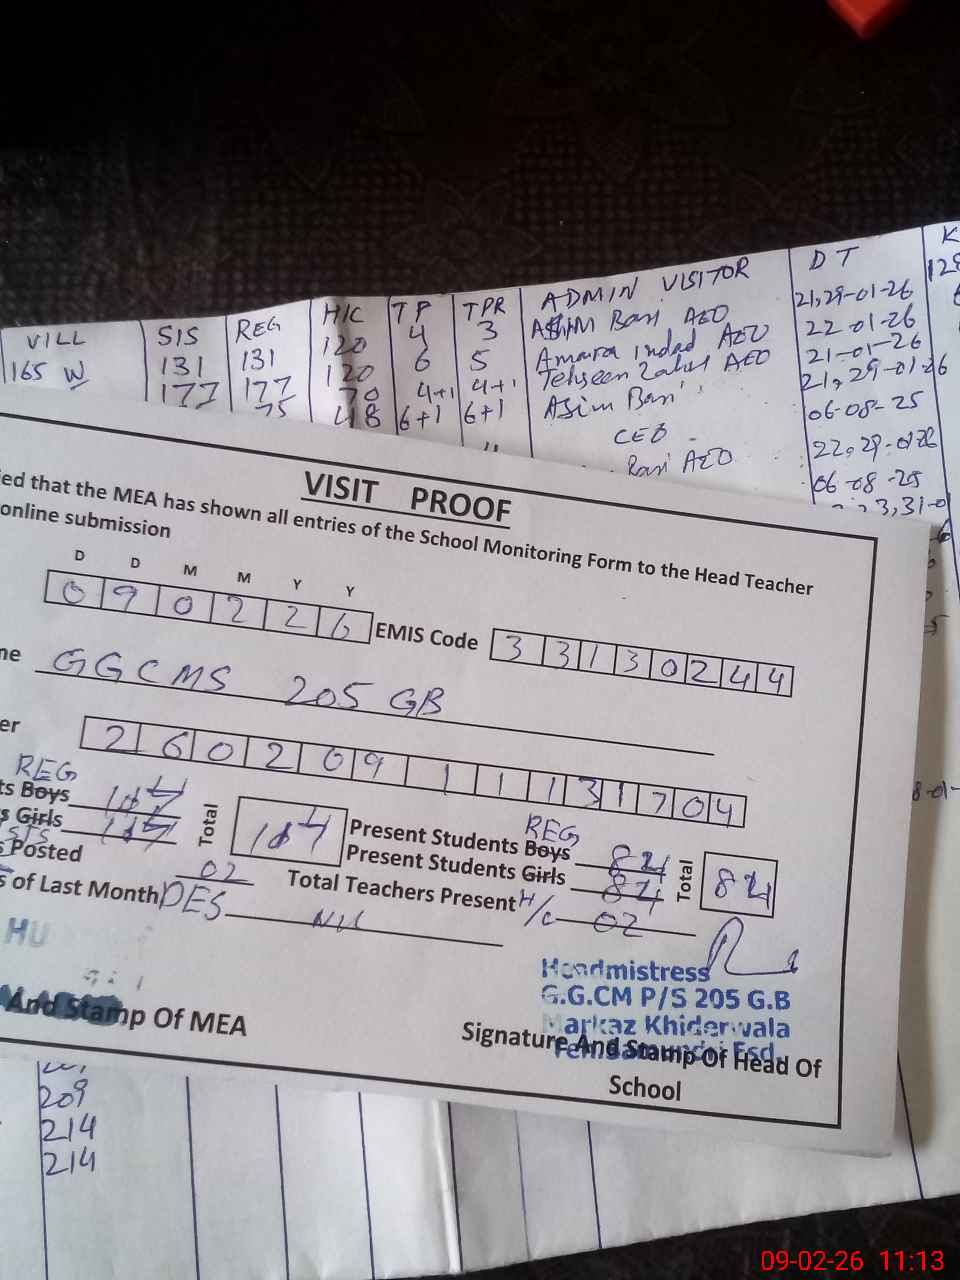 VILL SIS REG H/C TP TPR ADMIN VISITOR DT K
165 W 131 131 120 4 3 Asim Bari AEO 21,29-01-26 128
177 177 120 6 5 Amara imdad AEO 22-01-26
75 70 4+1 4+1 Tehseen AEO 21-01-26
48 6+1 6+1 Asim Bari 21,29-01-26
CEO 06-08-25
Bari AEO 22,29-01-26
06-08-25
VISIT PROOF
ied that the MEA has shown all entries of the School Monitoring Form to the Head Teacher
online submission
D D M M Y Y
090226 EMIS Code 33130244
me GGCMS 205 GB
er 260209111131704
REG
ts Boys
s Girls Total
s Posted 02
s of Last Month DES Nil
REG
Present Students Boys 84
Present Students Girls 84 Total 84
Total Teachers Present H/C 02
Headmistress
G.G.CM P/S 205 G.B
Markaz Khiderwala
And Stamp Of MEA
Signature And Stamp Of Head Of
School
209
214
214
09-02-26 11:13